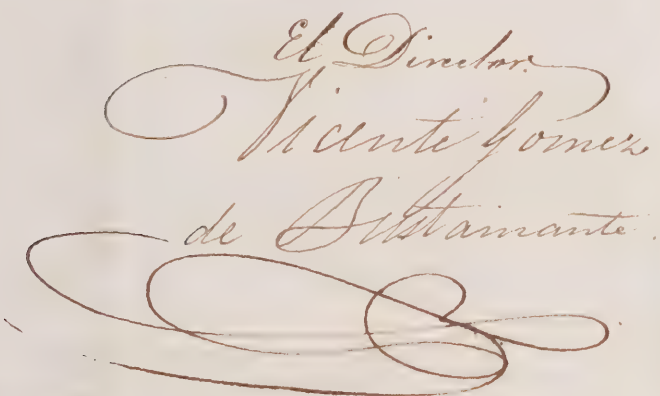 El Director.
Vicente Gomez
de Bustamante.